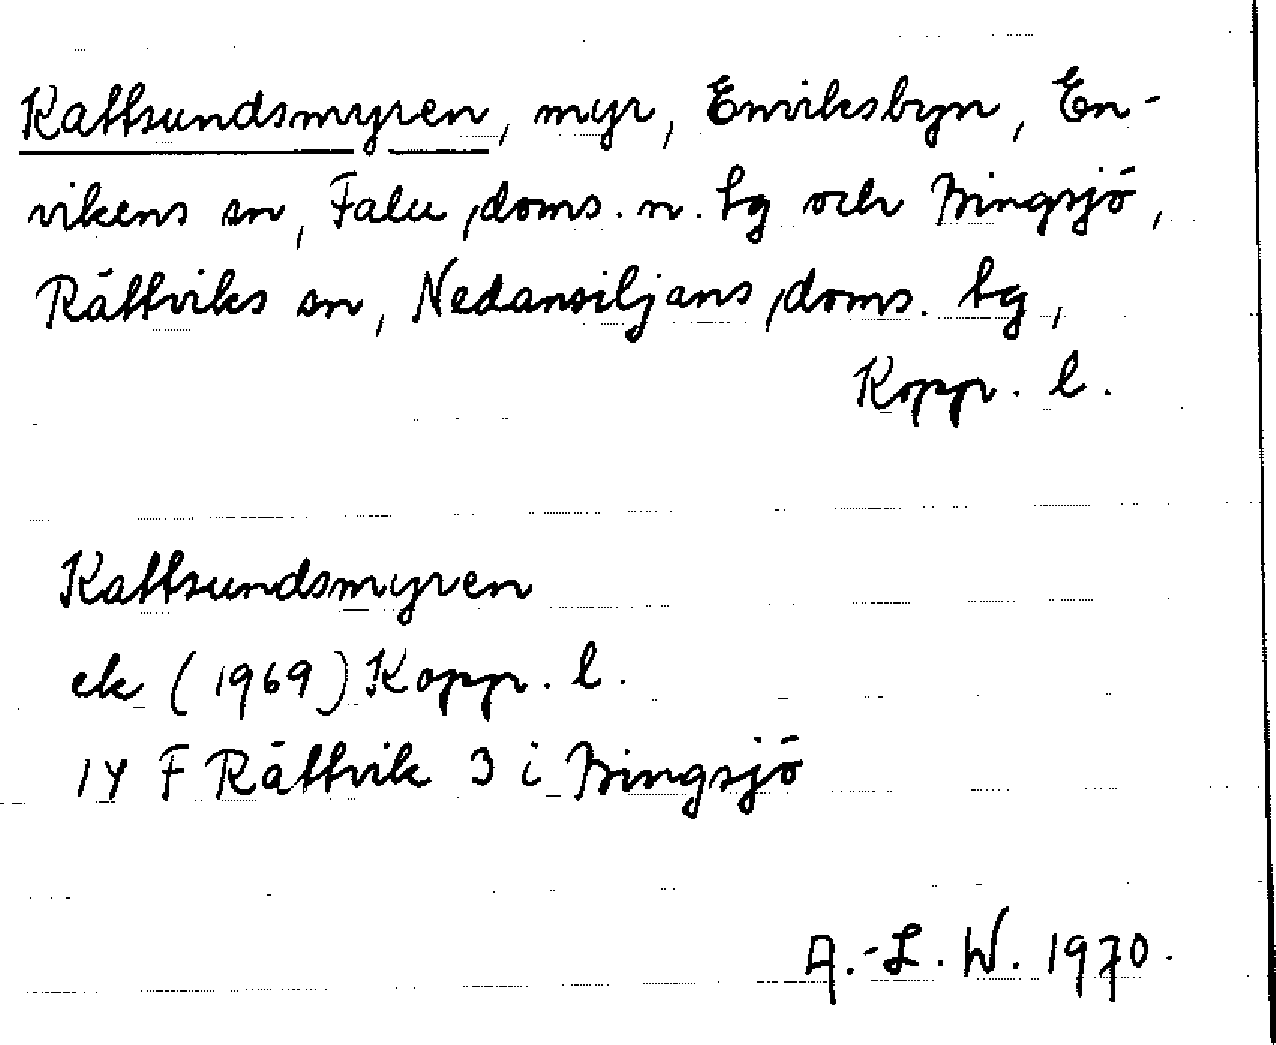 Kattsundsmyren, myr, Enviksbyn, En-
vikens sn, Falu doms. n. tg och Bingsjö,
Rättviks sn, Nedansiljans doms. tg,
Kopp. l.
Kattsundsmyren
ek (1969) Kopp. l.
14 F Rättvik 3 i Bingsjö
A.-L. W. 1970.